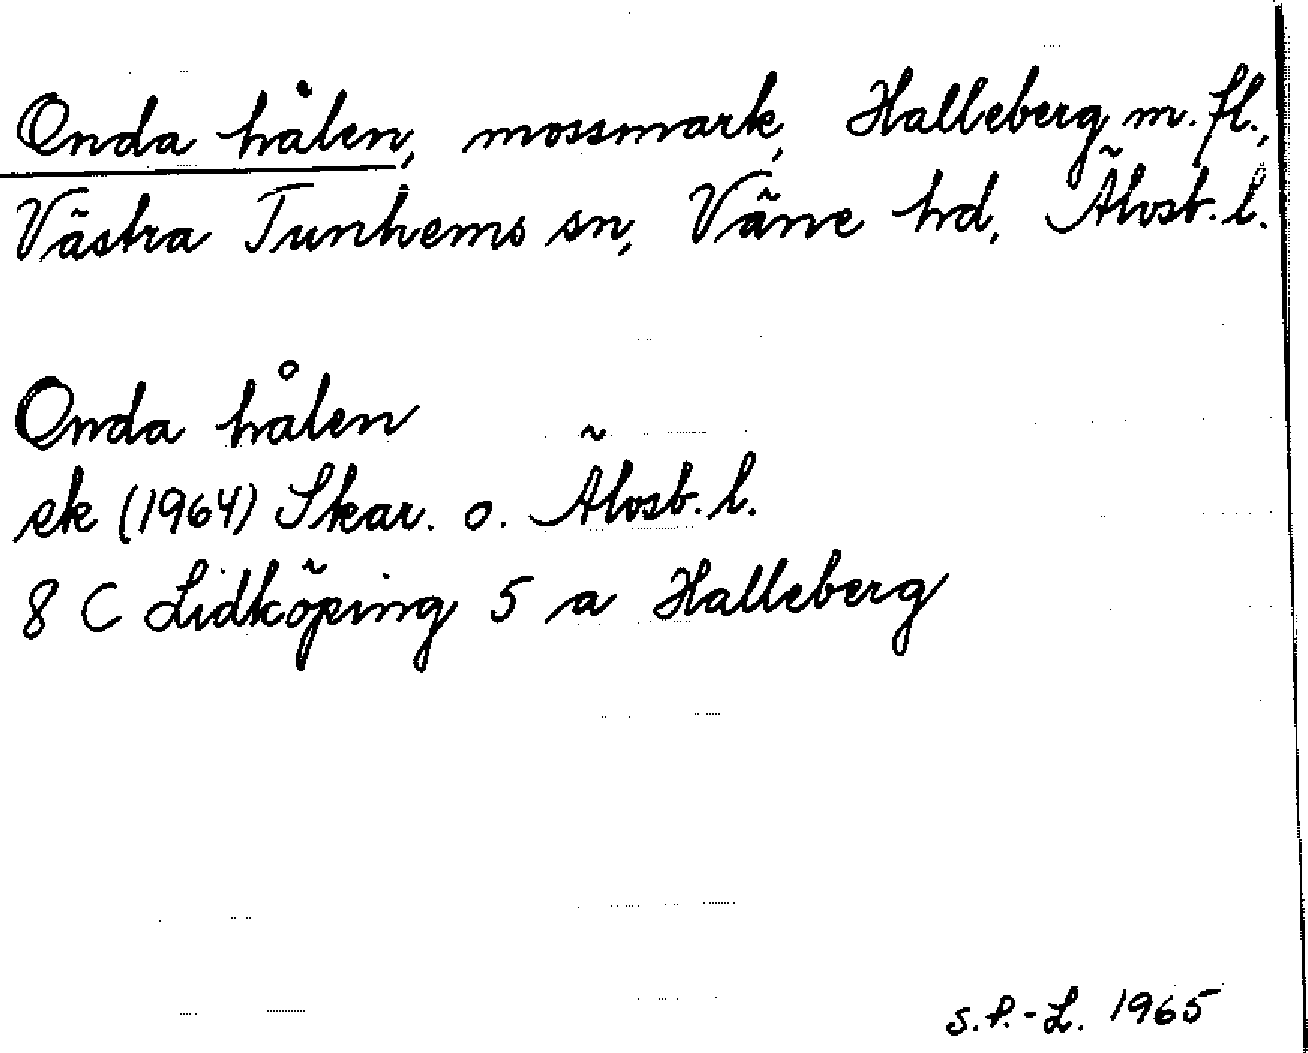 Onda hålen, mossmark, Halleberg m. fl.,
Västra Tunhems sn, Väne hd, Älvsb. l.
Onda hålen
ek (1964) Skar. o. Älvsb. l.
8 C Lidköping 5 a Halleberg
S.P.-L. 1965